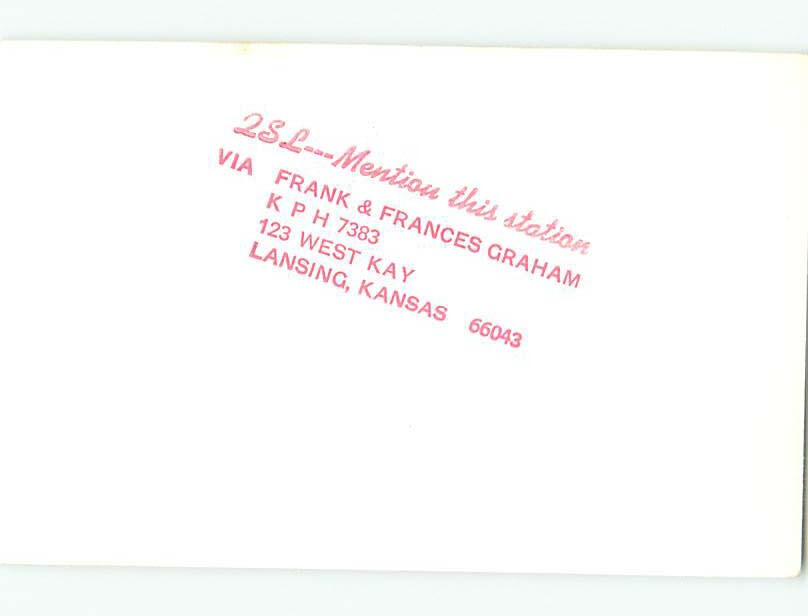 QSL---Mention this station
VIA FRANK & FRANCES GRAHAM
K P H 7383
123 WEST KAY
LANSING, KANSAS 66043